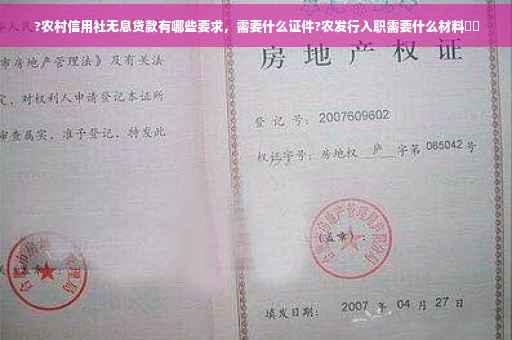 ?农村信用社无息贷款有哪些要求，需要什么证件?农发行入职需要什么材料
人民
市房地产管理法》及有关法
定，对权利人申请登记本证所
审查属实，准予登记，特发此
房地产权证
登记号：2007609602
权证字号：房地权 庐 字第 085042 号
(盖章)：
填发日期： 2007 年 04 月 27 日